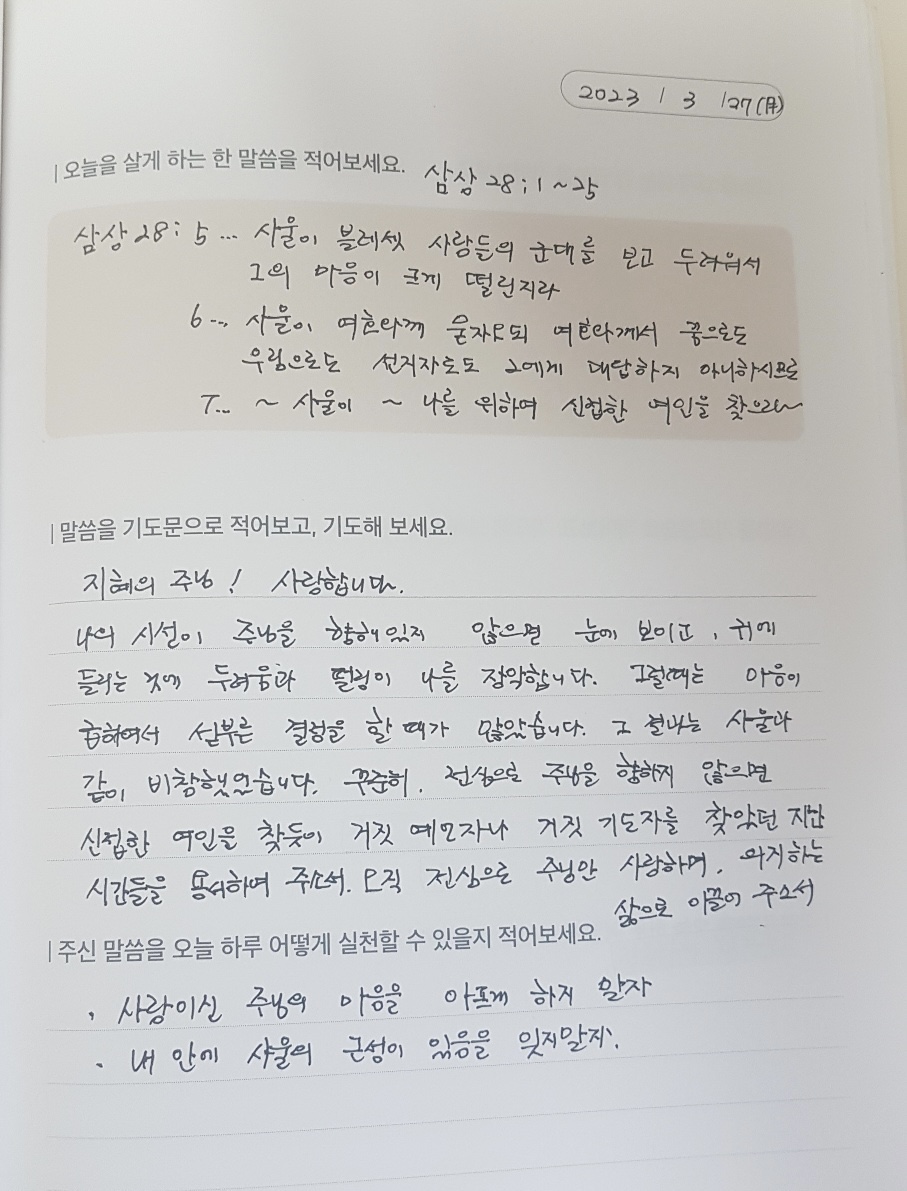 2023 / 3 /27(月)
오늘을 살게 하는 한 말씀을 적어보세요. 삼상 28:1~25
삼상 28:5... 사울이 블레셋 사람들의 군대를 보고 두려워서
그의 마음이 크게 떨린지라
6... 사울이 여호와께 묻자오되 여호와께서 꿈으로도
우림으로도 선지자로도 그에게 대답하지 아니하시므로
7... ~ 사울이 ~ 나를 위하여 신접한 여인을 찾으라~
말씀을 기도문으로 적어보고, 기도해 보세요.
지혜의 주님! 사랑합니다.
나의 시선이 주님을 향해 있지 않으면 눈에 보이고, 귀에
들리는 것에 두려움과 떨림이 나를 장악합니다. 그럴때는 마음이
급하여서 섣부른 결정을 할 때가 많았습니다. 그 결과는 사울과
같이 비참했었습니다. 꾸준히, 전심으로 주님을 향하지 않으면
신접한 여인을 찾듯이 거짓 예언자나 거짓 기도자를 찾았던 지난
시간들을 용서하여 주소서. 오직 전심으로 주님만 사랑하며, 의지하는
삶으로 이끌어 주소서
주신 말씀을 오늘 하루 어떻게 실천할 수 있을지 적어보세요.
· 사랑이신 주님의 마음을 아프게 하지 말자
· 내 안에 사울의 근성이 있음을 잊지말자.